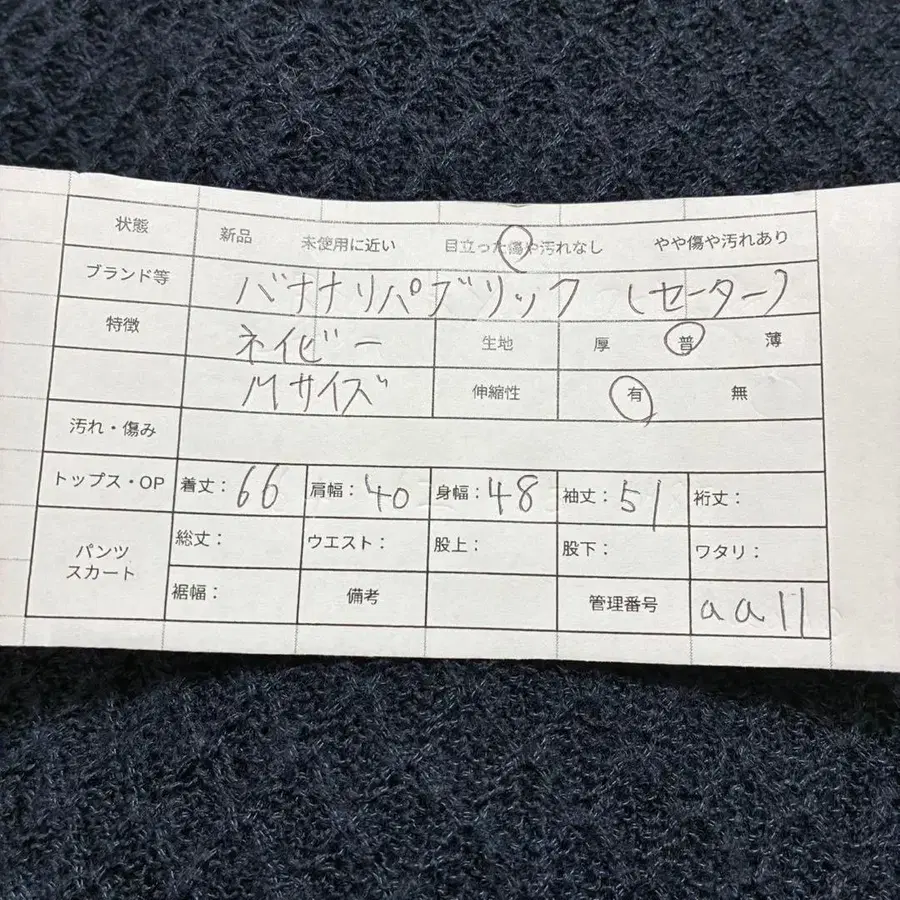 状態 新品 未使用に近い 目立った傷や汚れなし やや傷や汚れあり
ブランド等 バナナリパブリック (セーター)
特徴 ネイビー 生地 厚 普 薄
Mサイズ 伸縮性 有 無
汚れ・傷み
トップス・OP 着丈:66 肩幅:40 身幅:48 袖丈:51 裄丈:
パンツ スカート 総丈: ウエスト: 股上: 股下: ワタリ:
裾幅: 備考 管理番号 aa11